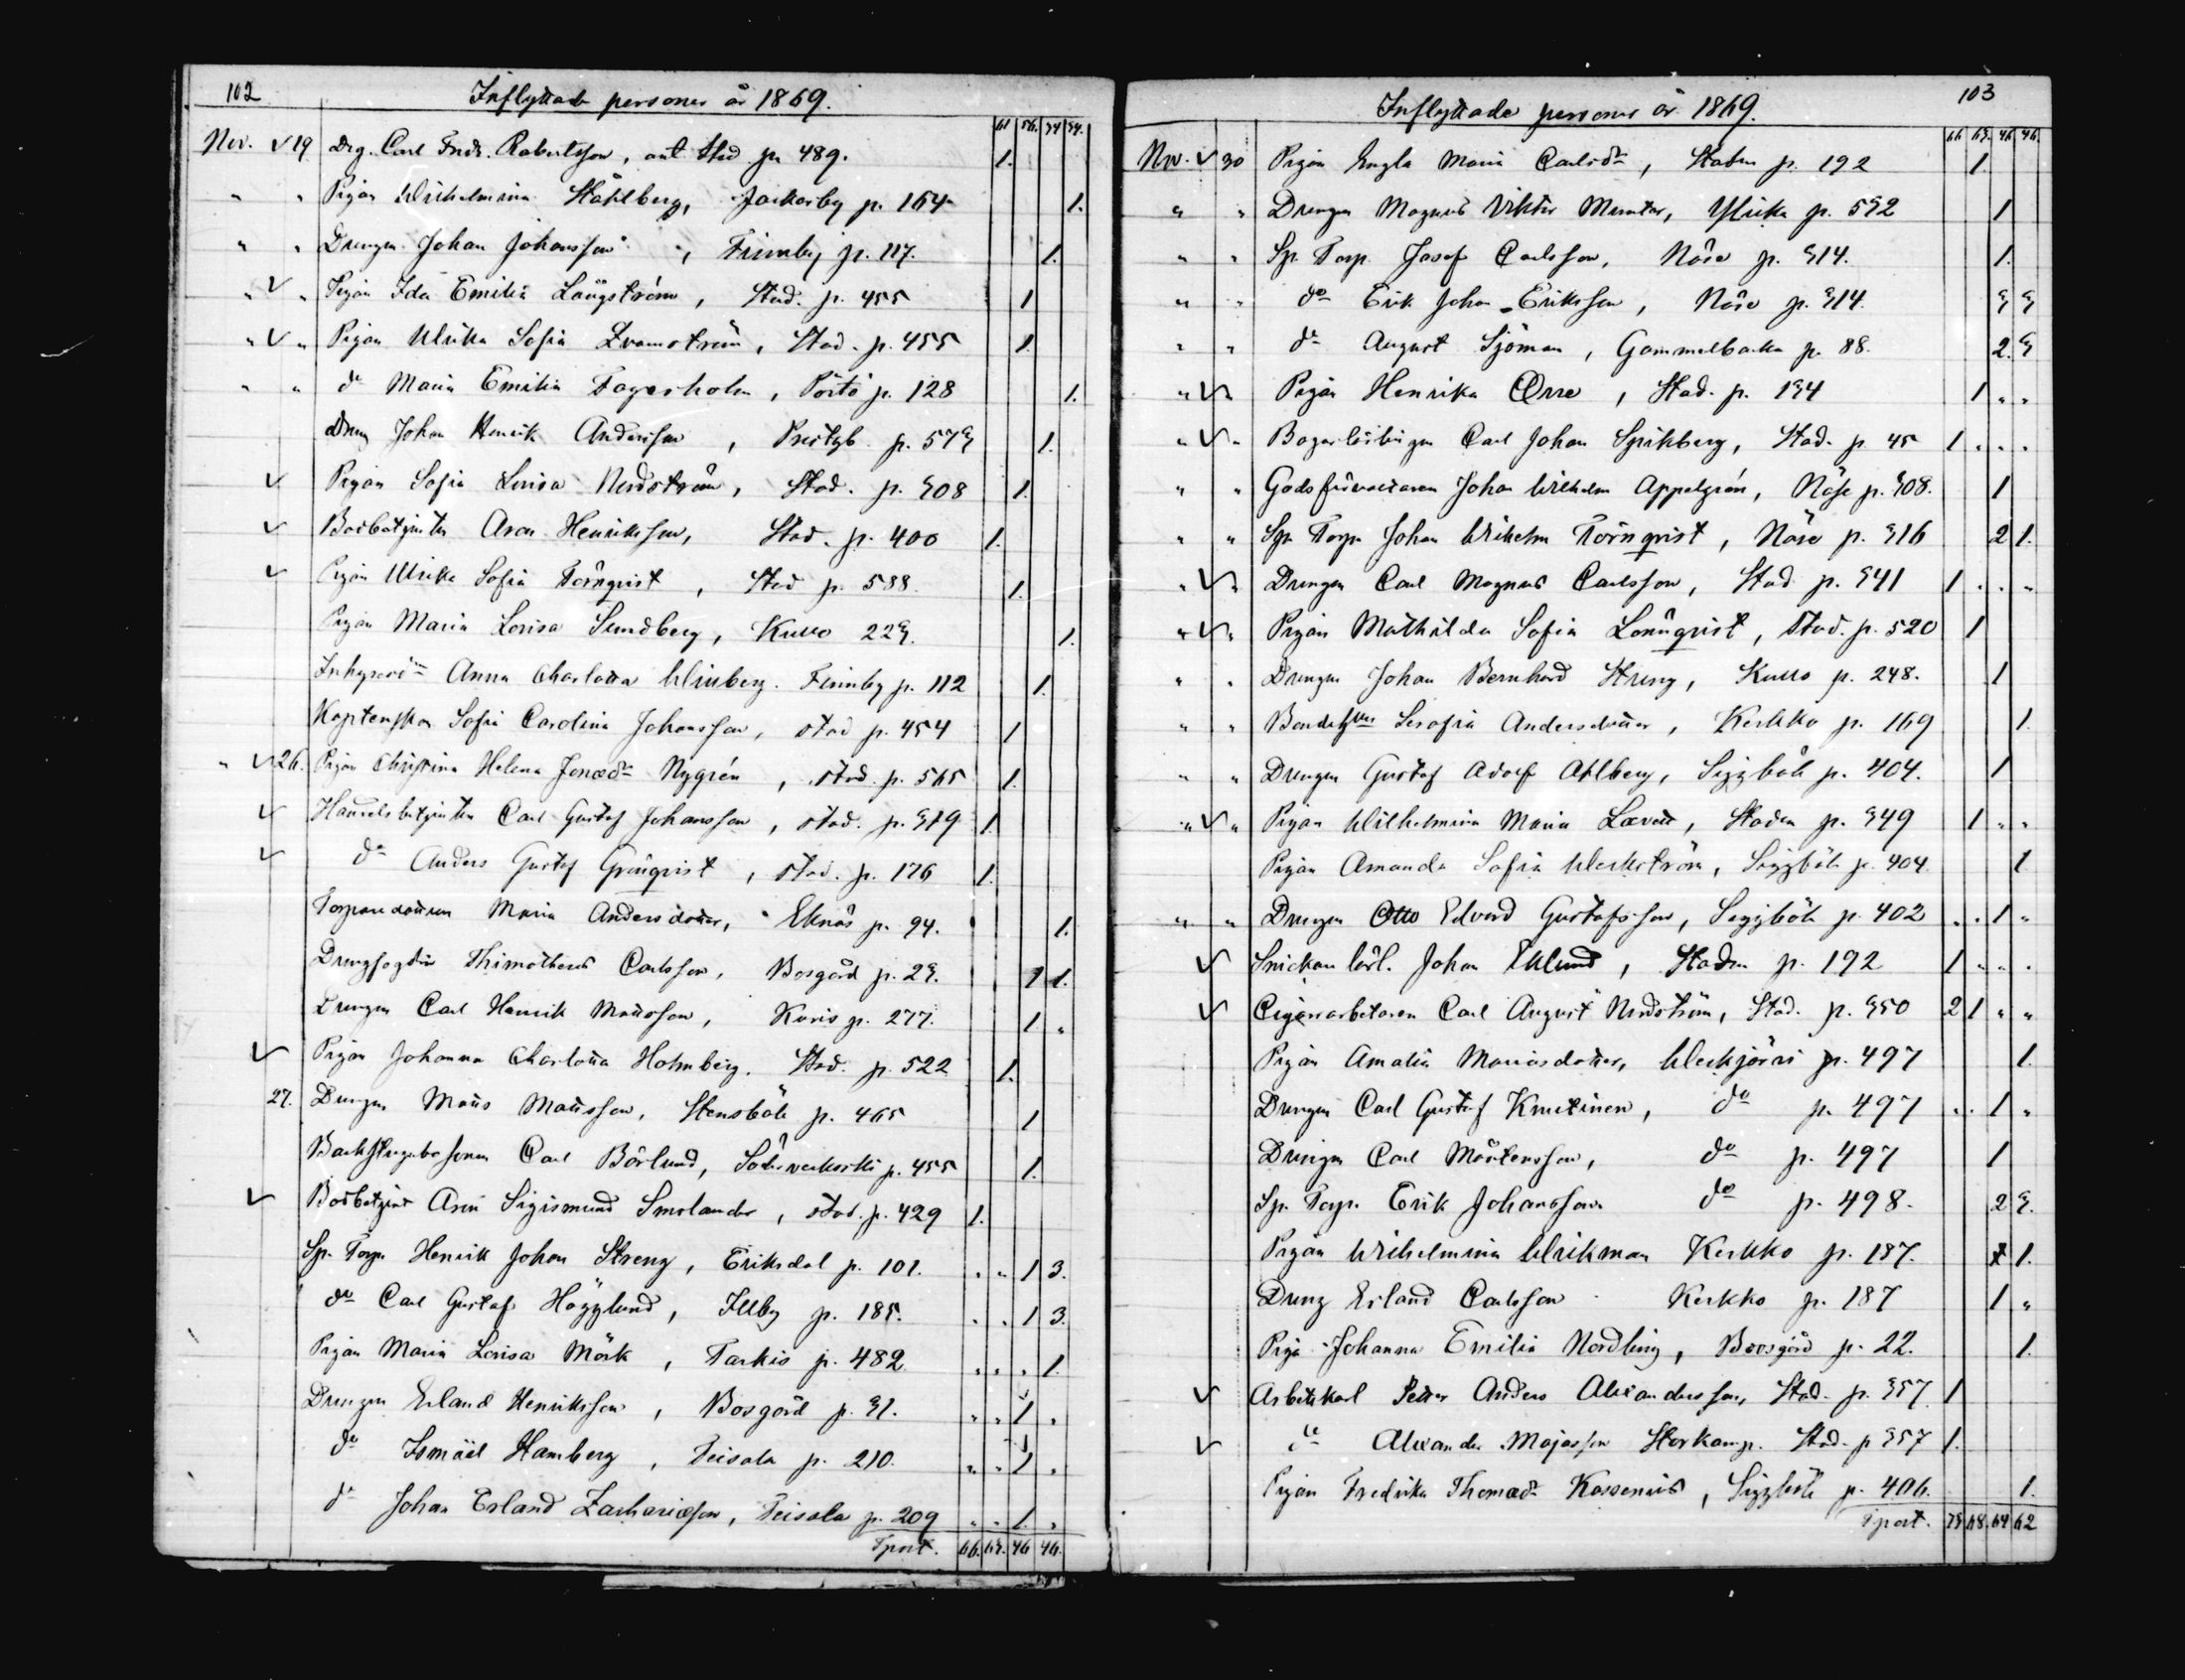 102
Inflyttade personer år 1869.
61 56. 34 34.
Nov. ✓ 19 Drg. Carl Fredr. Robertsson, Stad p. 489. 1.
" " Pigan Wilhelmina Ståhlberg, Jackarby p. 164 1.
" " Drengen Johan Johansson, Finnby p. 117. 1.
" ✓ " Pigan Ida Emilia Långström, Stad. p. 455 1
" ✓ " Pigan Ulrika Sofia, Stad. p. 455 1.
" " do Maria Emilia Fagerholm, Pörtö p. 128 1.
Dreng Johan Henrik Andersson, p. 573 1.
✓ Pigan Sofia Lovisa Nordström, Stad. p. 308 1.
✓ Bodbetjenten Aron Henriksson, Stad. p. 400 1.
✓ Pigan Ulrika Sofia Törnqvist, Stad p. 588. 1.
Pigan Maria Lovisa Sundberg, Kullo 223. 1.
Anna Charlotta Winberg. Finnby p. 112 1.
Kaptenskan Sofia Carolina Johansson, stad p. 454 1
" ✓ 26. Pigan Christina Helena Jonædr Nygrén, stad. p. 565 1.
✓ Handelsbetjenten Carl Gustaf Johansson, stad. p. 379 1.
✓ do Anders Gustaf Grönqvist, stad. p. 176 1.
Torparedottren Maria Andersdotter, Eknäs p. 94. 1.
Drengfogden Thimotheus Carlsson, Bosgård p. 23. 1 1.
Drengen Carl Henrik Mattsson, Kuris p. 277. 1 "
✓ Pigan Johanna Charlotta Holmberg. Stad. p. 522 1.
27. Drengen Matts Mattsson, Stensböle p. 465 1
Carl Börlund, p. 455 1.
✓ Bodbetjent Aron Sigismund Smolander, stad. p. 429 1.
Sp. Torp. Henrik Johan Streng, Eriksdal p. 101. " " 1 3.
do Carl Gustaf Högglund, Illby p. 185. " " 1 3.
Pigan Maria Lovisa Mörk, Tarkis p. 482 " " " 1.
Drengen Erland Henriksson, Bosgård p. 31. " " 1 "
do Ismäel Hamberg, Teisala p. 210. " " 1 "
do Johan Erland Zachariæson, Teisala p. 209 " " 1. "
Tport. 66. 63. 46 46.
103
Inflyttade personer år 1869.
66 63. 46 46.
Nov. ✓ 30 Pigan Engla Maria Carlsdr, Staden p. 192 1.
" " Drengen Magnus Viktor Munter, p. 532 1
" " Sp. Torp. Josef Carlsson, Näse p. 314. 1.
" " do Erik Johan Eriksson, Näse p. 314. 3 3
" " do August Sjöman, Gammelbacka p. 88. 2. 3
" ✓ " Pigan Henrika Orre, Stad. p. 134 1 " "
" ✓ " Bagarlärlingen Carl Johan Spikberg, Stad. p. 45 1 " " "
" " Godsförvaltaren Johan Wilhelm Appelgrén, Näse p. 308. 1
" " Sp. Torp. Johan Wilhelm Törnqvist, Näse p. 316 2 1.
" ✓ " Drengen Carl Magnus Carlsson, Stad p. 341 1 " " "
" ✓ " Pigan Mathilda Sofia Lönnqvist, Stad. p. 520 1
" " Drengen Johan Bernhard Streng, Kullo p. 248. 1
" " Serafia Andersdotter, Kerkko p. 169 1.
" " Drengen Gustaf Adolf Ahlberg, Siggböle p. 404. 1
" ✓ " Pigan Wilhelmina Maria, Staden p. 349 1 " "
Pigan Amanda Sofia Weckström, Siggböle p. 404. 1
" " Drengen Otto Edvard Gustafsson, Siggböle p. 402 " " 1 "
✓ Snickarlärl. Johan Eklund, Staden p. 192 1 " " "
✓ Cigarrarbetaren Carl August Nordström, Stad. p. 350 2 1 " "
Pigan Amalia Mariasdotter, Weckjärvi p. 497 1.
Drengen Carl Gustaf Knutinen, do p. 497 " " 1 "
Drengen Carl Mårtensson, do p. 497 1
Sp. Torp. Erik Johansson do p. 498. 2 3.
Pigan Wilhelmina Wikman Kerkko p. 187. 1.
Dreng Erland Carlsson Kerkko p. 187 1 "
Piga Johanna Emilia Nordling, Bosgård p. 22. 1.
✓ Arbetskarl Petter Anders Alexandersson, Stad. p. 357 1
✓ do Alexander Majasson Storkamp. Stad. p 357 1.
Pigan Fredrika Thomædr Kossenius, Siggböle p. 406. 1.
Tport. 73 68. 64 62